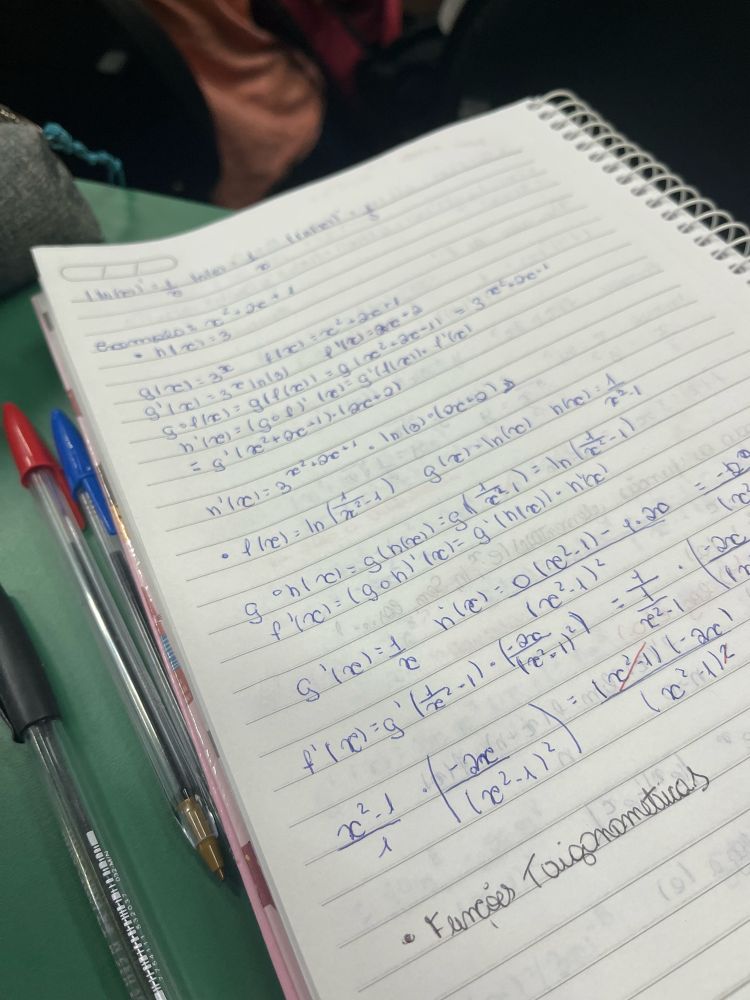 (ln(x))' = 1/x
exemplos x² + 2x + 1
• h(x) = 3
g(x) = 3ˣ f(x) = x² + 2x + 1
g'(x) = 3ˣ ln(3) f'(x) = 2x + 2
g∘f(x) = g(f(x)) = g(x² + 2x + 1) = 3^(x² + 2x + 1)
h'(x) = (g∘f)'(x) = g'(f(x)) · f'(x)
= g'(x² + 2x + 1) · (2x + 2)
h'(x) = 3^(x² + 2x + 1) · ln(3) · (2x + 2)
• f(x) = ln(1/(x² - 1)) g(x) = ln(x) h(x) = 1/(x² - 1)
g∘h(x) = g(h(x)) = g(1/(x² - 1)) = ln(1/(x² - 1))
f'(x) = (g∘h)'(x) = g'(h(x)) · h'(x)
g'(x) = 1/x h'(x) = (0(x² - 1) - 1·2x)/(x² - 1)² = -2x/(x²
f'(x) = g'(1/(x² - 1)) · (-2x/(x² - 1)²) = 1/(1/(x² - 1)) · (-2x/(x
(x² - 1)/1 · (-2x/(x² - 1)²) = (x² - 1)(-2x)/(x² - 1)²
• Funções Trigonométricas